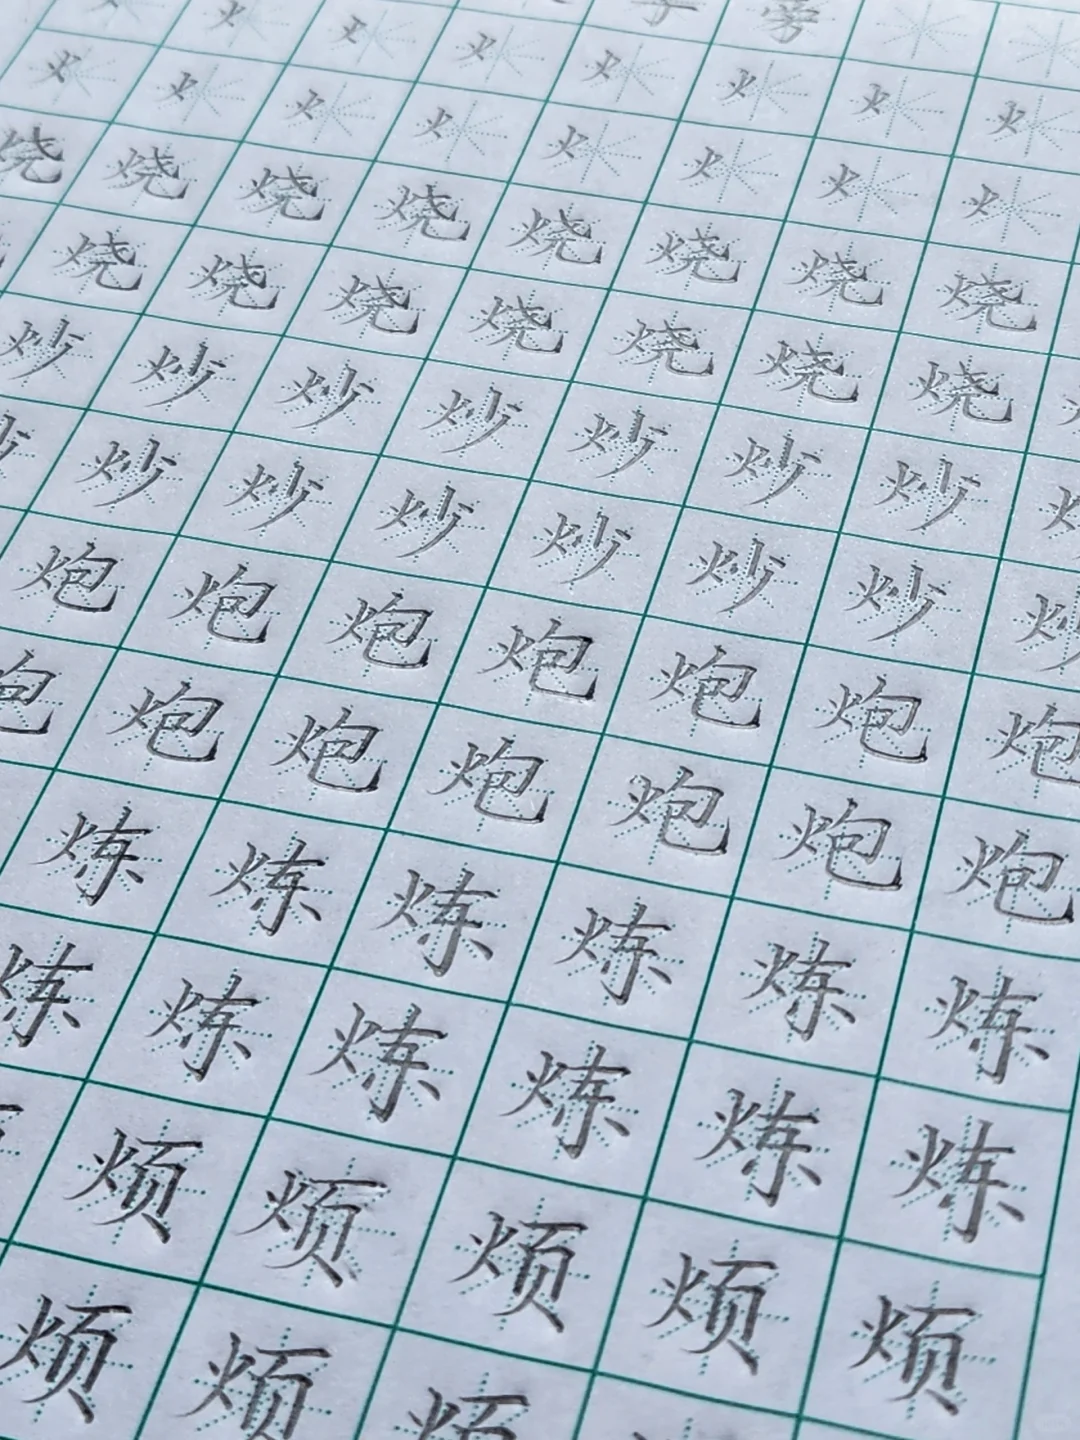 字 旁
火 火 火 火 火 火 火
火 火 火 火 火 火 火 火
烧 烧 烧 烧 烧 烧 烧 烧
烧 烧 烧 烧 烧 烧 烧
炒 炒 炒 炒 炒 炒 炒
炒 炒 炒 炒 炒 炒
炮 炮 炮 炮 炮 炮 炮
炮 炮 炮 炮 炮 炮 炮
炼 炼 炼 炼 炼 炼
炼 炼 炼 炼 炼 炼
烦 烦 烦 烦 烦
烦 烦 烦